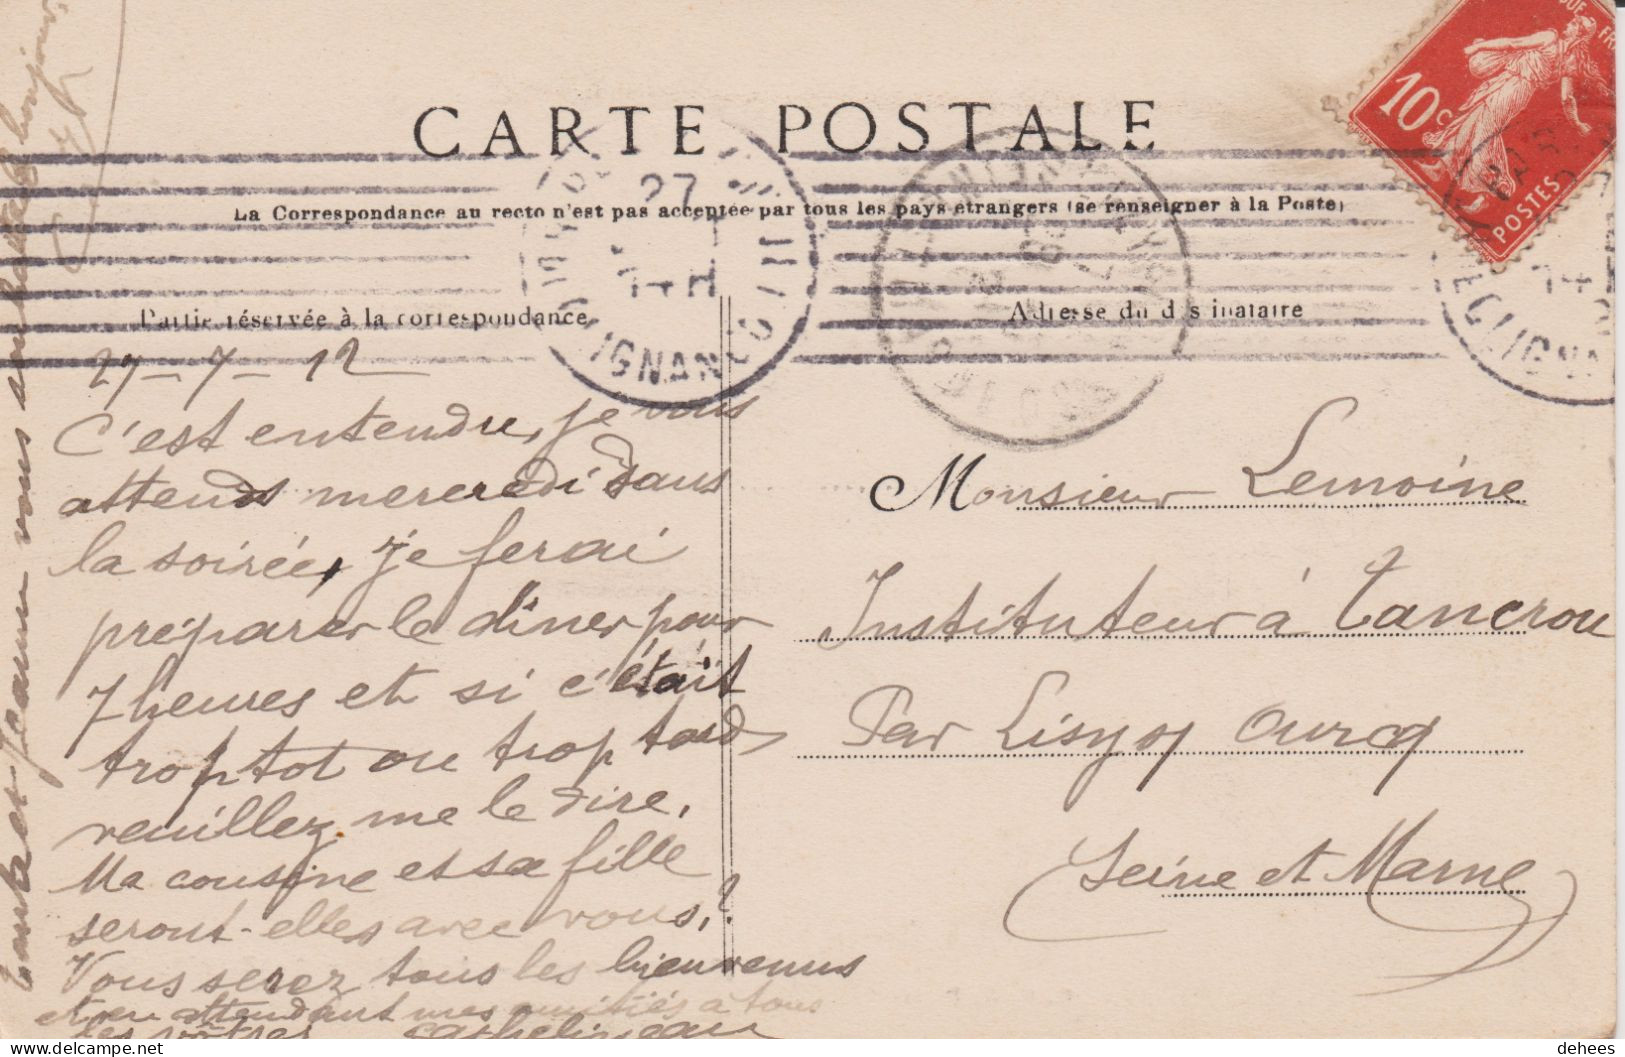 CARTE POSTALE
La Correspondance au recto n'est pas acceptée par tous les pays étrangers (se renseigner à la Poste)
Partie réservée à la correspondance
Adresse du d s inataire
10c
POSTES
27
27-7-12
C'est entendu, je vous
attends mercredi dans
la soirée, je ferai
préparer le dîner pour
7 heures et si c'était
trop tot ou trop tard
veuillez me le dire.
Ma cousine et sa fille
seront-elles avec vous,?
Vous serez tous les bienvenus
et en attendant mes amitiés à tous
les vôtres Cathelineau
Tante et Jeanne vous souhaite bonjour
Monsieur Lemoine
Instituteur à Tancrou
Par Lisy s/ Ourcq
Seine et Marne
dehees